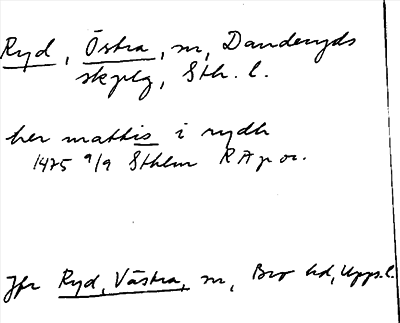 Ryd, Östra, sn, Danderyds
skplg, Sth. l.
her mattis i rydh
1475 9/9 Sthlm RAp or.
Jfr Ryd, Västra, sn, Bro hd, Upps. l.